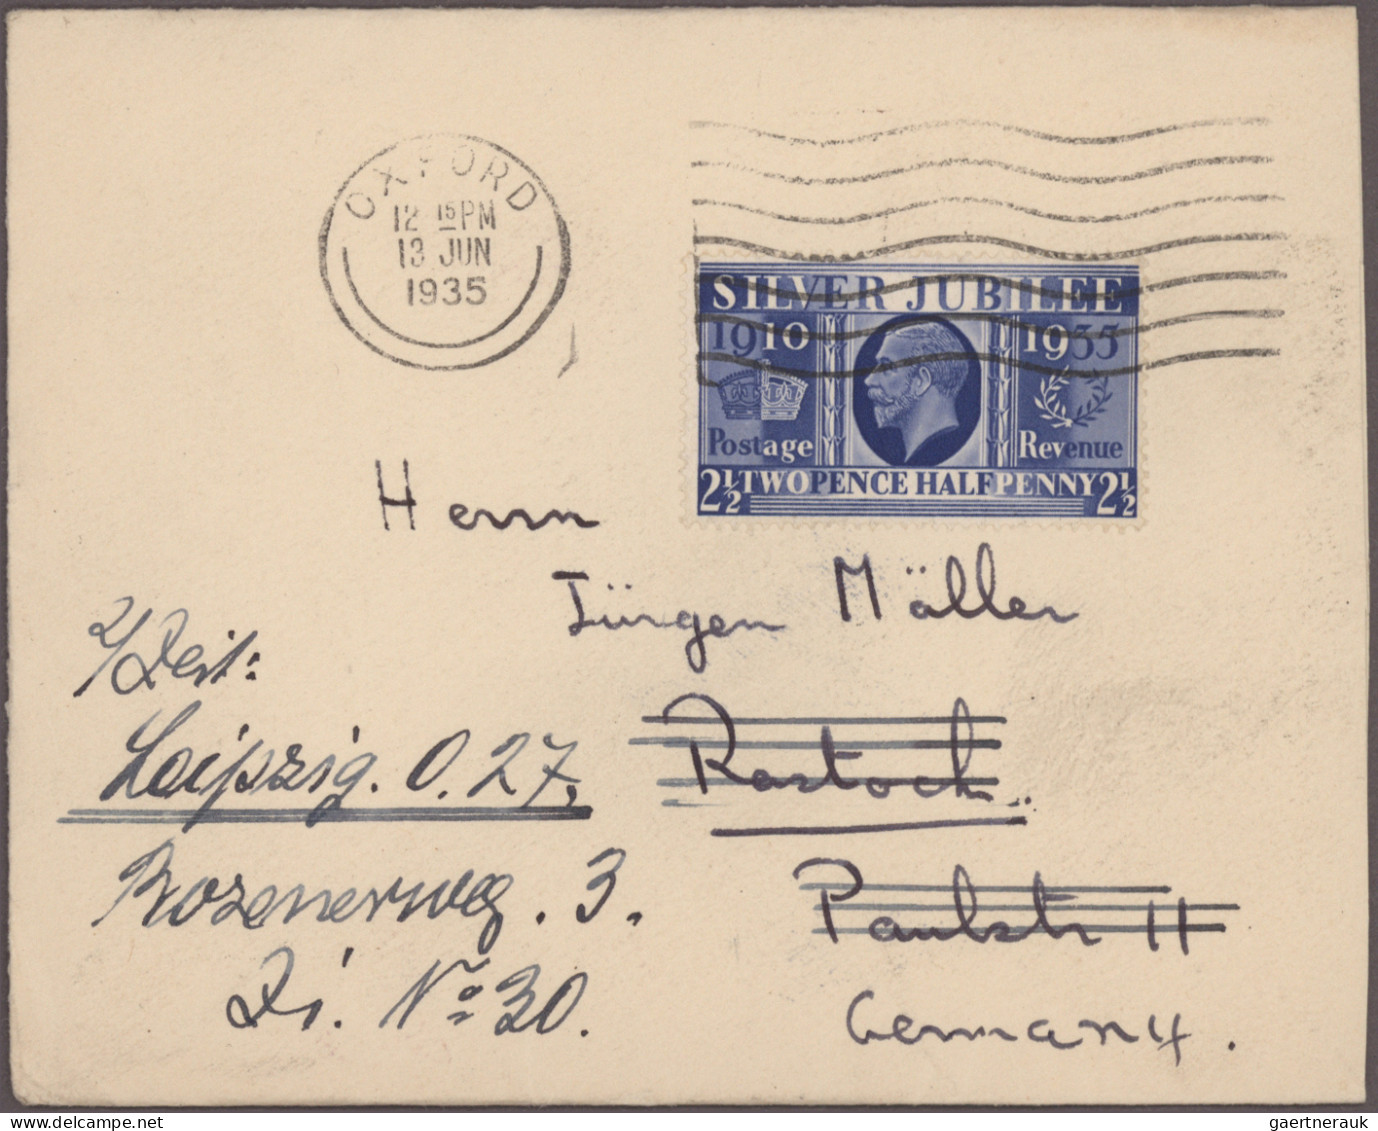 OXFORD
12 15 PM
13 JUN
1935
SILVER JUBILEE
1910 1935
Postage Revenue
2½ TWOPENCE HALFPENNY 2½
Herrn
Jürgen Mäller
Rostock
Paulstr 11
Germany.
Z/Zeit:
Leipzig. O. 27.
Bozenerweg. 3.
Zi. No 30.
gaertnerauk